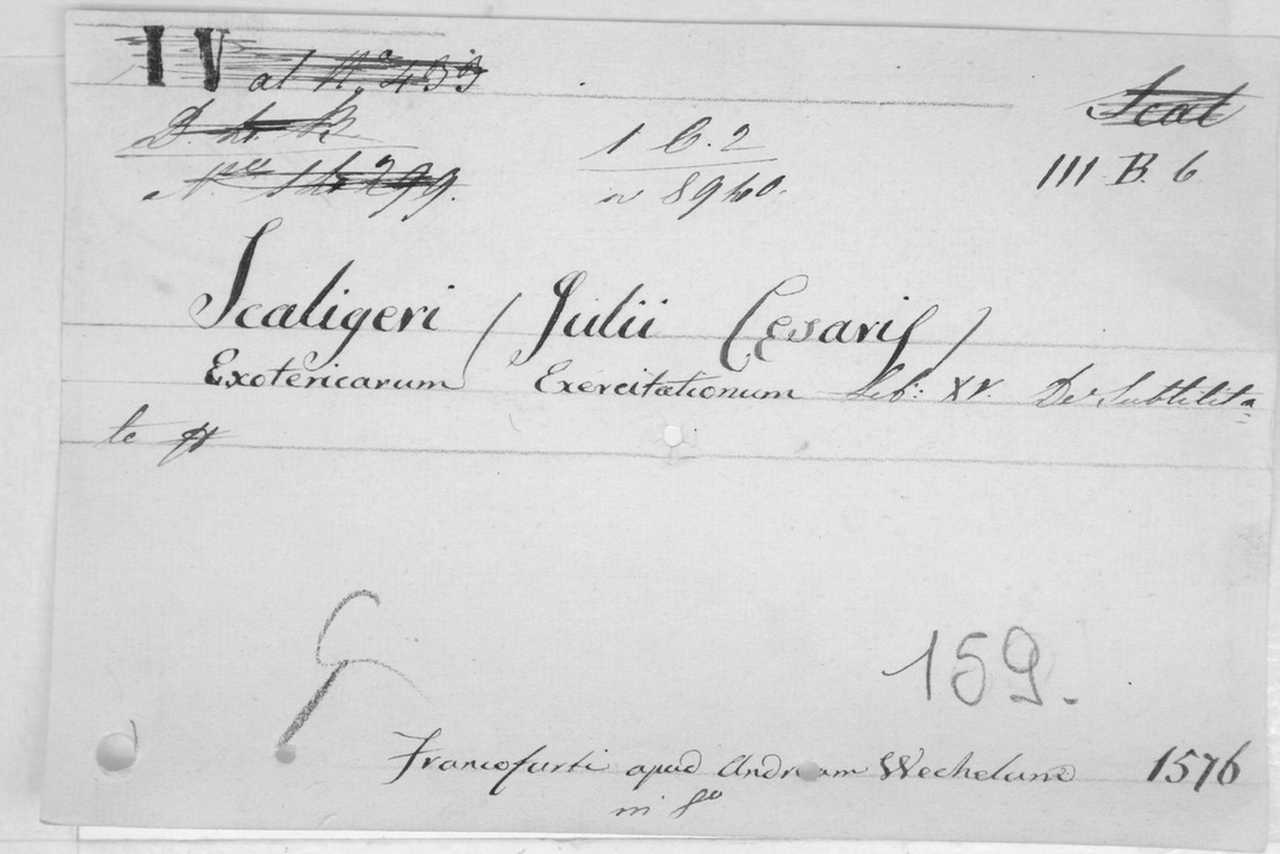 IV al Nº 433
Scal
D. L. R
1 C. 2
III B. 6
n 8940.
Scaligeri (Julii Cesaris)
Exotericarum Exercitationum Lib: XV. De Subtilita=
te
159.
Francofurti apud Andream Wechelum 1576
in 8º